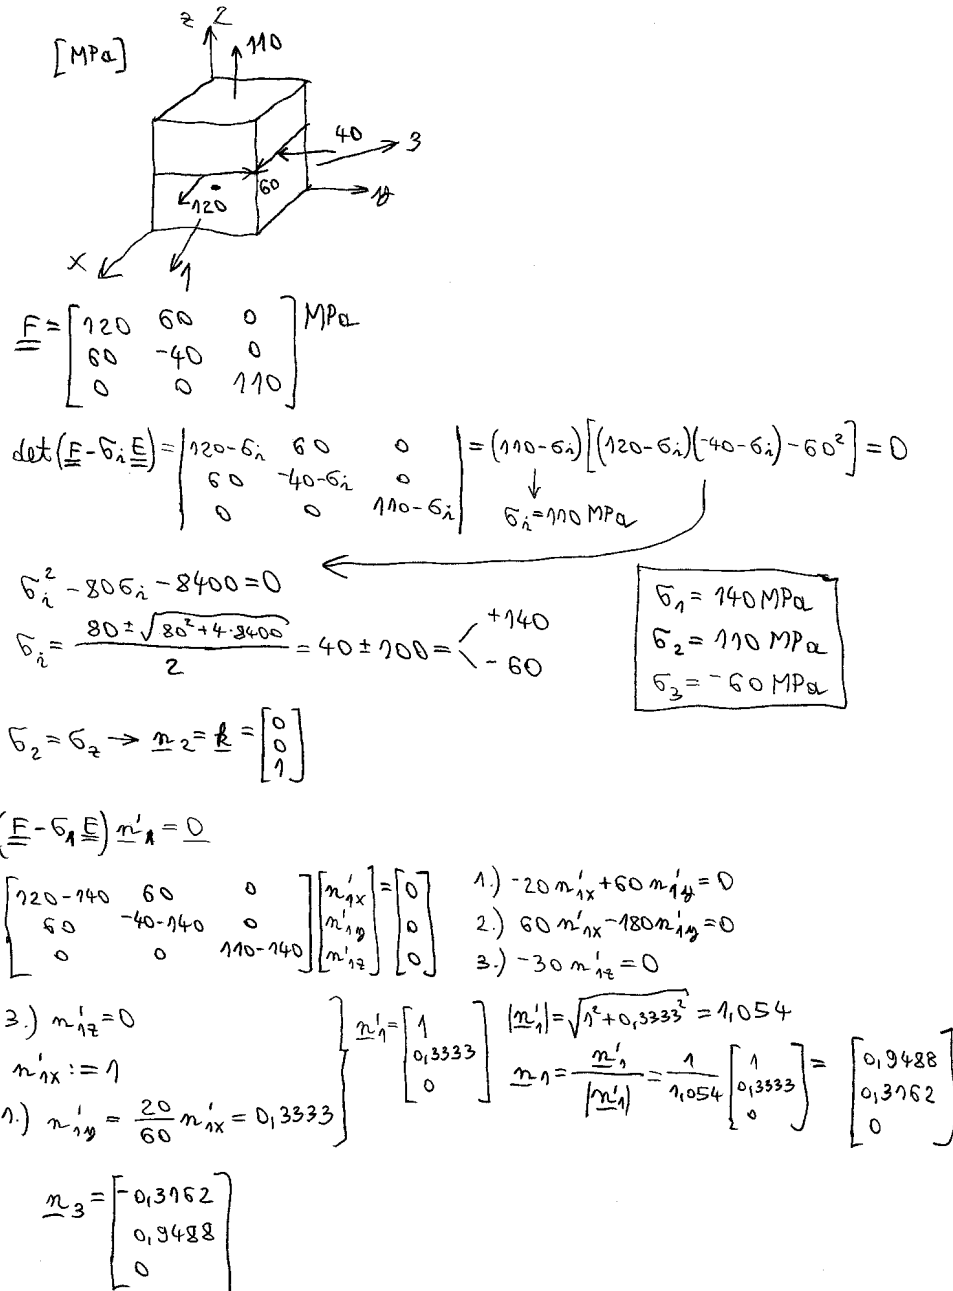 z 2
[MPa]
110
40
3
60
120
y
x
1
F = [120 60 0] MPa
[60 -40 0]
[0 0 110]
det(F - σi E) = |120-σi 60 0| = (110-σi)[(120-σi)(-40-σi) - 60²] = 0
|60 -40-σi 0|
|0 0 110-σi|
↓
σi = 110 MPa
σi² - 80σi - 8400 = 0
σi = (80 ± √(80² + 4·8400)) / 2 = 40 ± 100 = < +140
- 60
σ1 = 140 MPa
σ2 = 110 MPa
σ3 = -60 MPa
σ2 = σz → n2 = k = [0]
[0]
[1]
(F - σ1 E) n'1 = 0
[120-140 60 0] [n'1x] = [0]
[60 -40-140 0] [n'1y] [0]
[0 0 110-140] [n'1z] [0]
1.) -20 n'1x + 60 n'1y = 0
2.) 60 n'1x - 180 n'1y = 0
3.) -30 n'1z = 0
3.) n'1z = 0
n'1x := 1
1.) n'1y = 20/60 n'1x = 0,3333
n'1 = [1]
[0,3333]
[0]
|n'1| = √(1² + 0,3333²) = 1,054
n1 = n'1/|n'1| = 1/1,054 [1] = [0,9488]
[0,3333] [0,3162]
[0] [0]
n3 = [-0,3162]
[0,9488]
[0]